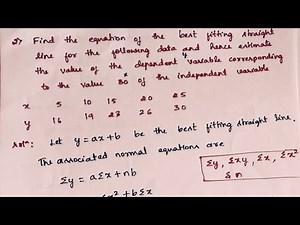 Find the equation of the best fitting straight
line for the following data and hence estimate
the value of the dependent variable corresponding
to the value 30 of the independent variable
x 5 10 15 20 25
y 16 19 23 26 30
Soln: Let y = ax + b be the best fitting straight line.
The associated normal equations are
Σy = aΣx + nb
Σy, Σxy, Σx, Σx²
& n
x² + bΣx